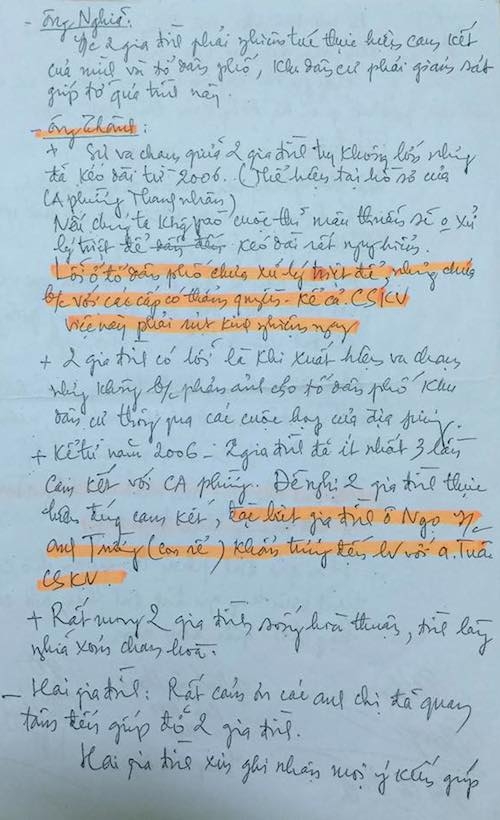 - Ông Nghiã:
Đ/c 2 gia đình phải nghiêm túc thực hiện cam kết
của mình và tổ dân phố, khu dân cư phải giám sát
giúp đỡ quá trình này.
- Ông Thành:
+ Sự va chạm giữa 2 gia đình tuy không lớn nhưng
đã kéo dài từ 2006. (Thể hiện tại hồ sơ của
CA phường Thanh nhàn)
Nếu chúng ta không vào cuộc thì mâu thuẫn sẽ o xử
lý triệt để kéo dài rất nguy hiểm.
Lỗi ở tổ dân phố chưa xử lý triệt để, nhưng chưa
b/c với các cấp có thẩm quyền - kể cả CSKV
việc này phải rút kinh nghiệm ngay
+ 2 gia đình có lỗi là khi xuất hiện va chạm
nhưng không b/c phản ánh cho tổ dân phố khu
dân cư thông qua các cuộc họp của địa phương.
+ Kể từ năm 2006 - 2 gia đình đã ít nhất 3 lần
cam kết với CA phường. Đề nghị 2 gia đình thực
hiện đúng cam kết, đặc biệt gia đình ô Ngọ y/c
anh (con rể) khẩn trương đến lv với a. Tuấn
CSKV
+ Rất mong 2 gia đình sống hoà thuận, tình làng
nghĩa xóm chan hoà.
- Hai gia đình: Rất cảm ơn các anh chị đã quan
tâm đến giúp đỡ 2 gia đình.
Hai gia đình xin ghi nhận mọi ý kiến giúp